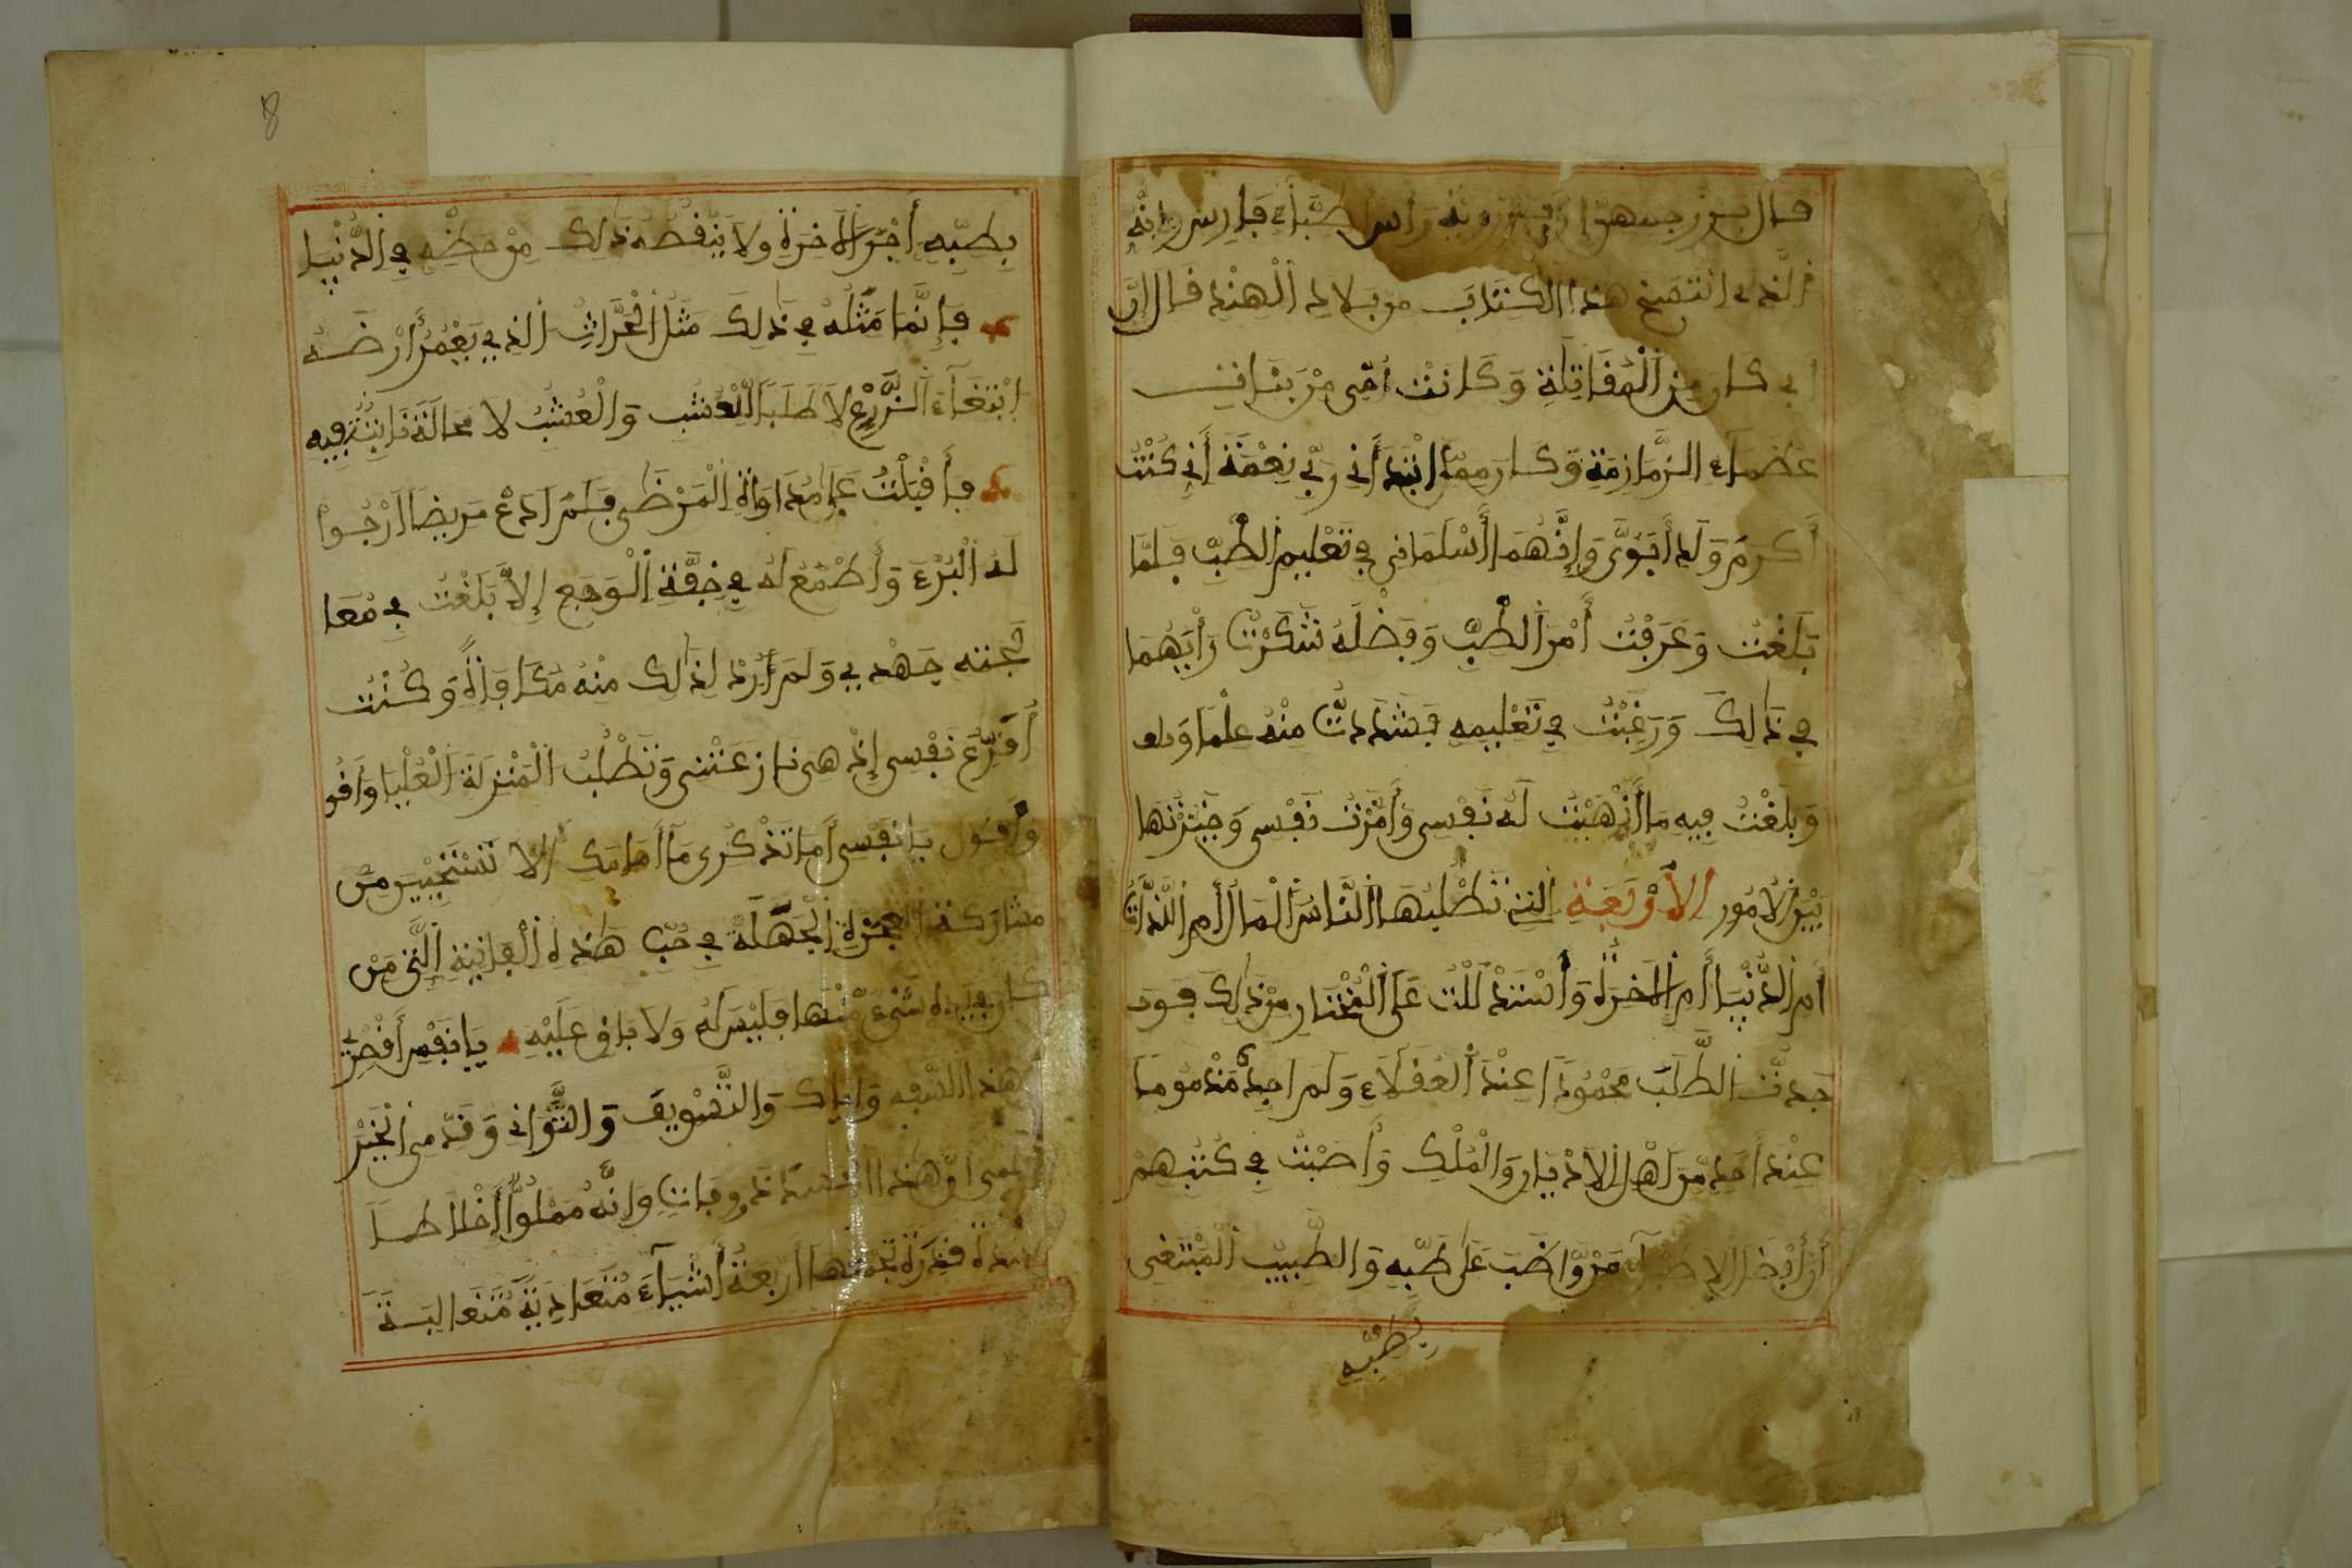 قال بزرجمهر برزويه رأس أطباء فارس إنه
الذي انتسخ هذا الكتاب من بلاد الهند قال إن
أبي كان من المقاتلة وكانت أمي من بنات
عظماء الزمازمة وكان مما ابتدأني ربي نعمة أني كنت
أكرم ولد أبوي وإنهما أسلماني في تعليم الطب فلما
بلغت وعرفت أمر الطب وفضله شكرت رأيهما
في ذلك ورغبت في تعليمه فشددت منه علما
وبلغت فيه ما أنهيت له نفسي وأمرت نفسي وخيرتها
بين الأمور الأربعة التي تطلبها الناس المال أم اللذات
أم الدنيا أم الآخرة وأستدللت على المختار من ذلك فو
جدت الطلب محمودا عند العقلاء ولم اجده مذموما
عند أحد من أهل الأديان والملك وأصبت في كتبهم
أن أفضل الاطباء من واضب على طبه والطبيب المبتغى
بطبه
8
بطبه أجر الآخرة ولا ينقصه ذلك من حظه في الدنيا
فإنما مثله في ذلك مثل الحراث الذي يعمر أرضه
ابتغاء الزرع لا طلب العشب والعشب لا محالة نابت فيه
فأقبلت على مداواة المرضى فلم ادع مريضا ارجوا
له البرء وأطمع له في خفة الوجع إلا بلغت في معا
لجته جهدي ولم أرد لذلك منه مكافاة وكنت
أفرغ نفسي إذ هي نازعتني وتطلب المنزلة العليا وأقو
وأقول يا نفسي أما تذكري ما أمامك ألا تستحيين من
مشاركة الفجرة الجهلة في حب هذه الفانية التي من
كان بيده شيء منها فليس له ولا باق عليه يا نفس أقصري
هذا السفه واياك والتسويف والتواني وقدمي الخير
ان هذا الجسد ذو وفات وإنه مملوا أخلاطا
قذرة تجمعها أربعة أشياء متعادية متغالبة